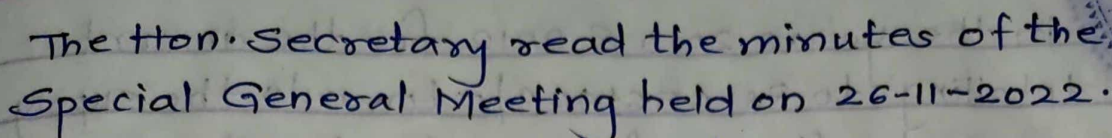 The Hon. Secretary read the minutes of the
Special General Meeting held on 26-11-2022.